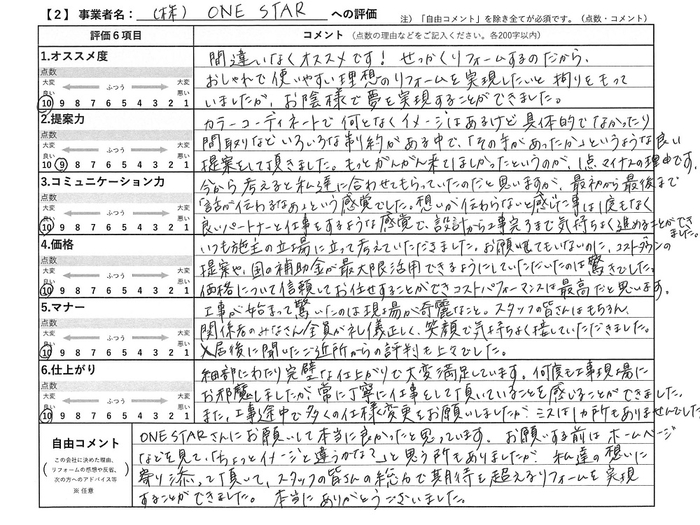 【2】 事業者名： (株) ONE STAR への評価
注）「自由コメント」を除き全てが必須です。（点数・コメント）
評価6項目 コメント（点数の理由などをご記入ください。各200字以内）
1.オススメ度
点数
大変良い ふつう 大変悪い
10 9 8 7 6 5 4 3 2 1
間違いなくオススメです！ せっかくリフォームするのだから、
おしゃれで使いやすい理想のリフォームを実現したいと拘りをもって
いましたが、お陰様で夢を実現することができました。
2.提案力
点数
大変良い ふつう 大変悪い
10 9 8 7 6 5 4 3 2 1
カラーコーディネートで何となくイメージはあるけど具体的でなかったり
間取りなどいろいろな制約がある中で、「その手があったか」というような良い
提案をして頂きました。もっとがんがん来てほしかったというのが、1点マイナスの理由です。
3.コミュニケーション力
点数
大変良い ふつう 大変悪い
10 9 8 7 6 5 4 3 2 1
今から考えると私達に合わせてもらっていたのだと思いますが、最初から最後まで
「話が伝わるなあ」という感覚でした。想いが伝わらないと感じた事は1度もなく
良いパートナーと仕事をするような感覚で、設計から工事完了まで気持ちよく進めることができ
ました。
4.価格
点数
大変良い ふつう 大変悪い
10 9 8 7 6 5 4 3 2 1
いつも施主の立場に立って考えていただきました。お願いしてもいないのに、コストダウンの
提案や、国の補助金が最大限活用できるようにしていただいたのは驚きでした。
価格について信頼してお任せすることができコストパフォーマンスは最高だと思います。
5.マナー
点数
大変良い ふつう 大変悪い
10 9 8 7 6 5 4 3 2 1
工事が始まって驚いたのは現場が奇麗なこと。スタッフの皆さんはもちろん、
関係者のみなさん全員が礼儀正しく、笑顔で気持ちよく接していただきました。
入居後に聞いたご近所からの評判も上々でした。
6.仕上がり
点数
大変良い ふつう 大変悪い
10 9 8 7 6 5 4 3 2 1
細部にわたり完璧な仕上がりで大変満足しています。何度も工事現場に
お邪魔しましたが常に丁寧に仕事をして頂いていることを感じることができました。
また、工事途中で多くの仕様変更をお願いしましたが ミスは1カ所もありませんでした
自由コメント
（この会社に決めた理由、
リフォームの感想や反省、
次の方へのアドバイス等）
※ 任意
ONE STARさんにお願いして本当に良かったと思っています。 お願いする前は ホームページ
などを見て、「ちょっとイメージと違うかな？」と思う所もありましたが、 私達の想いに
寄り添って頂いて、スタッフの皆さんの総力で期待を超えるリフォームを実現
することができました。 本当にありがとうございました。